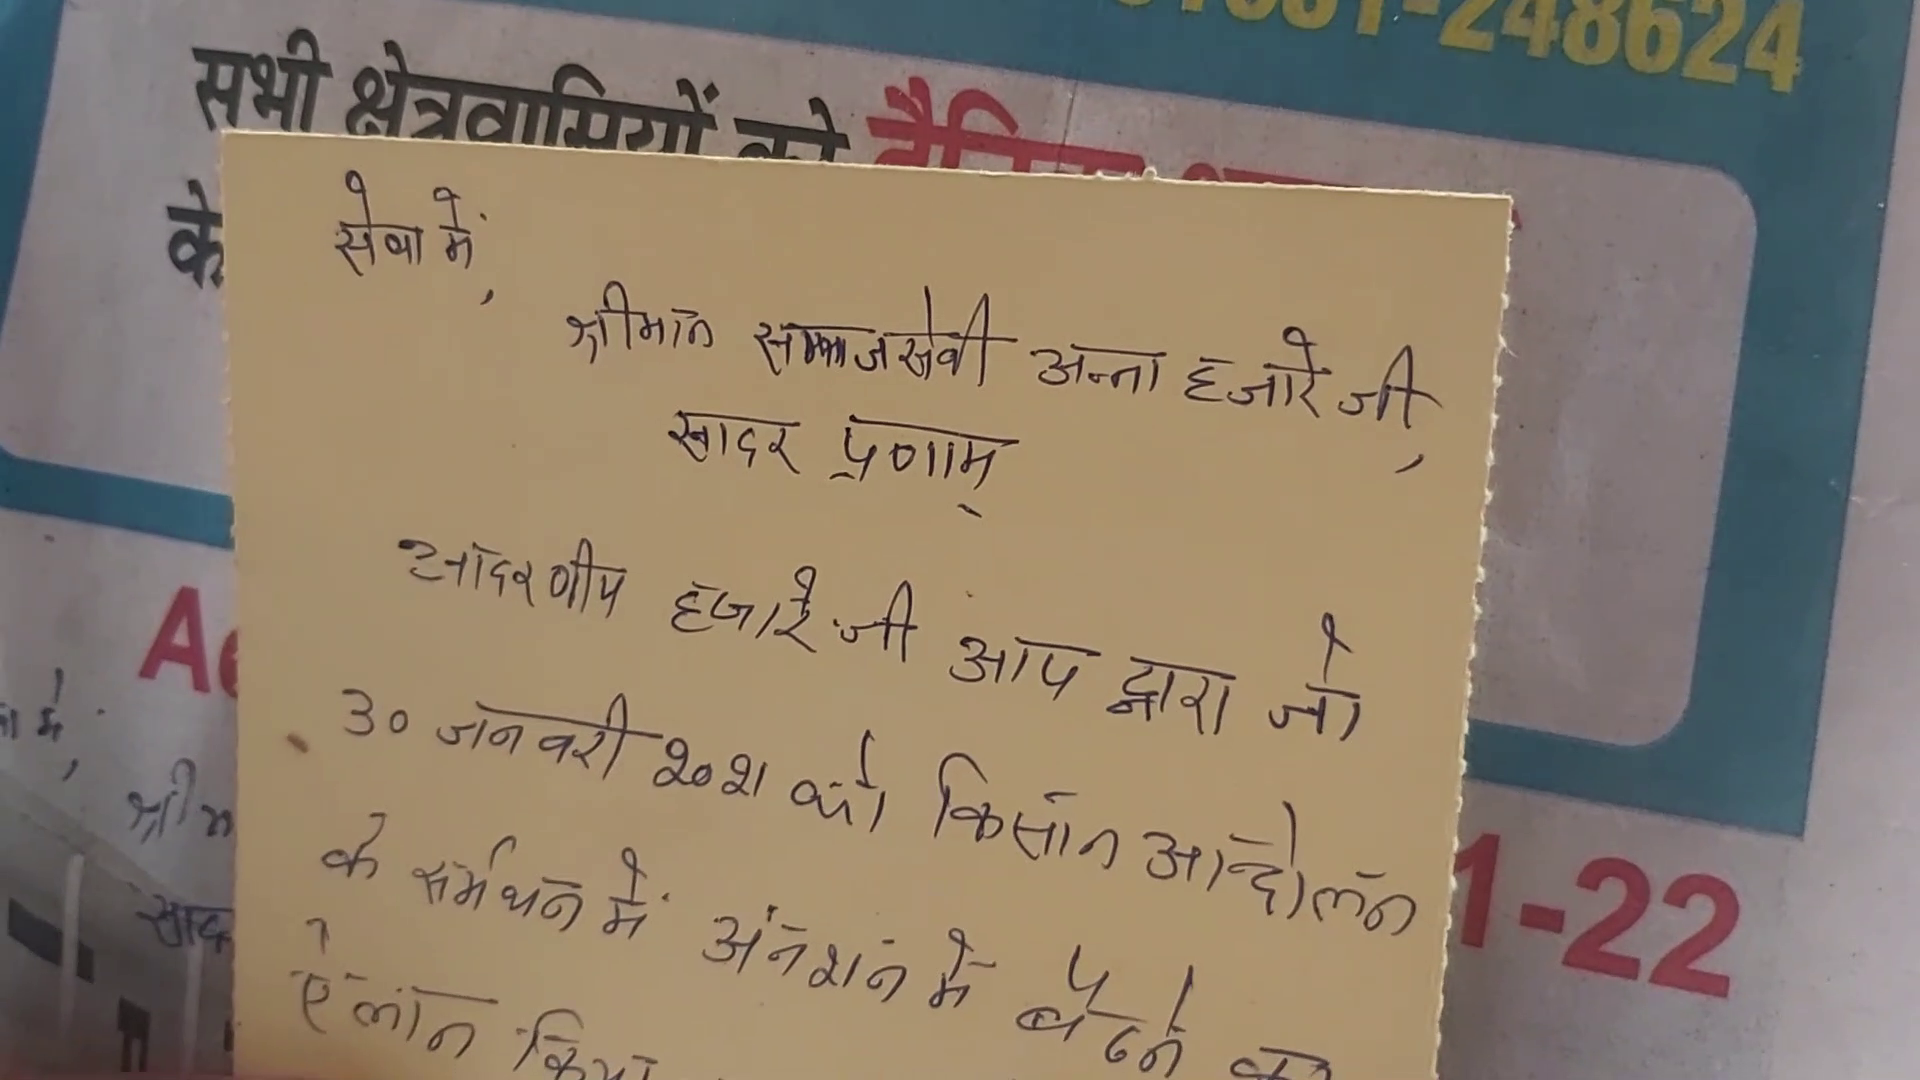 -248624
सभी क्षेत्रवासियों को
के
सेवा में,
श्रीमान समाजसेवी अन्ना हजारे जी,
सादर प्रणाम्
आदरणीय हजारे जी आप द्वारा जो
30 जनवरी 2021 को किसान आन्दोलन
के सर्मथन में अंनशन में बैठने का
ऐलान किया
1-22
में,
श्रीम
साद